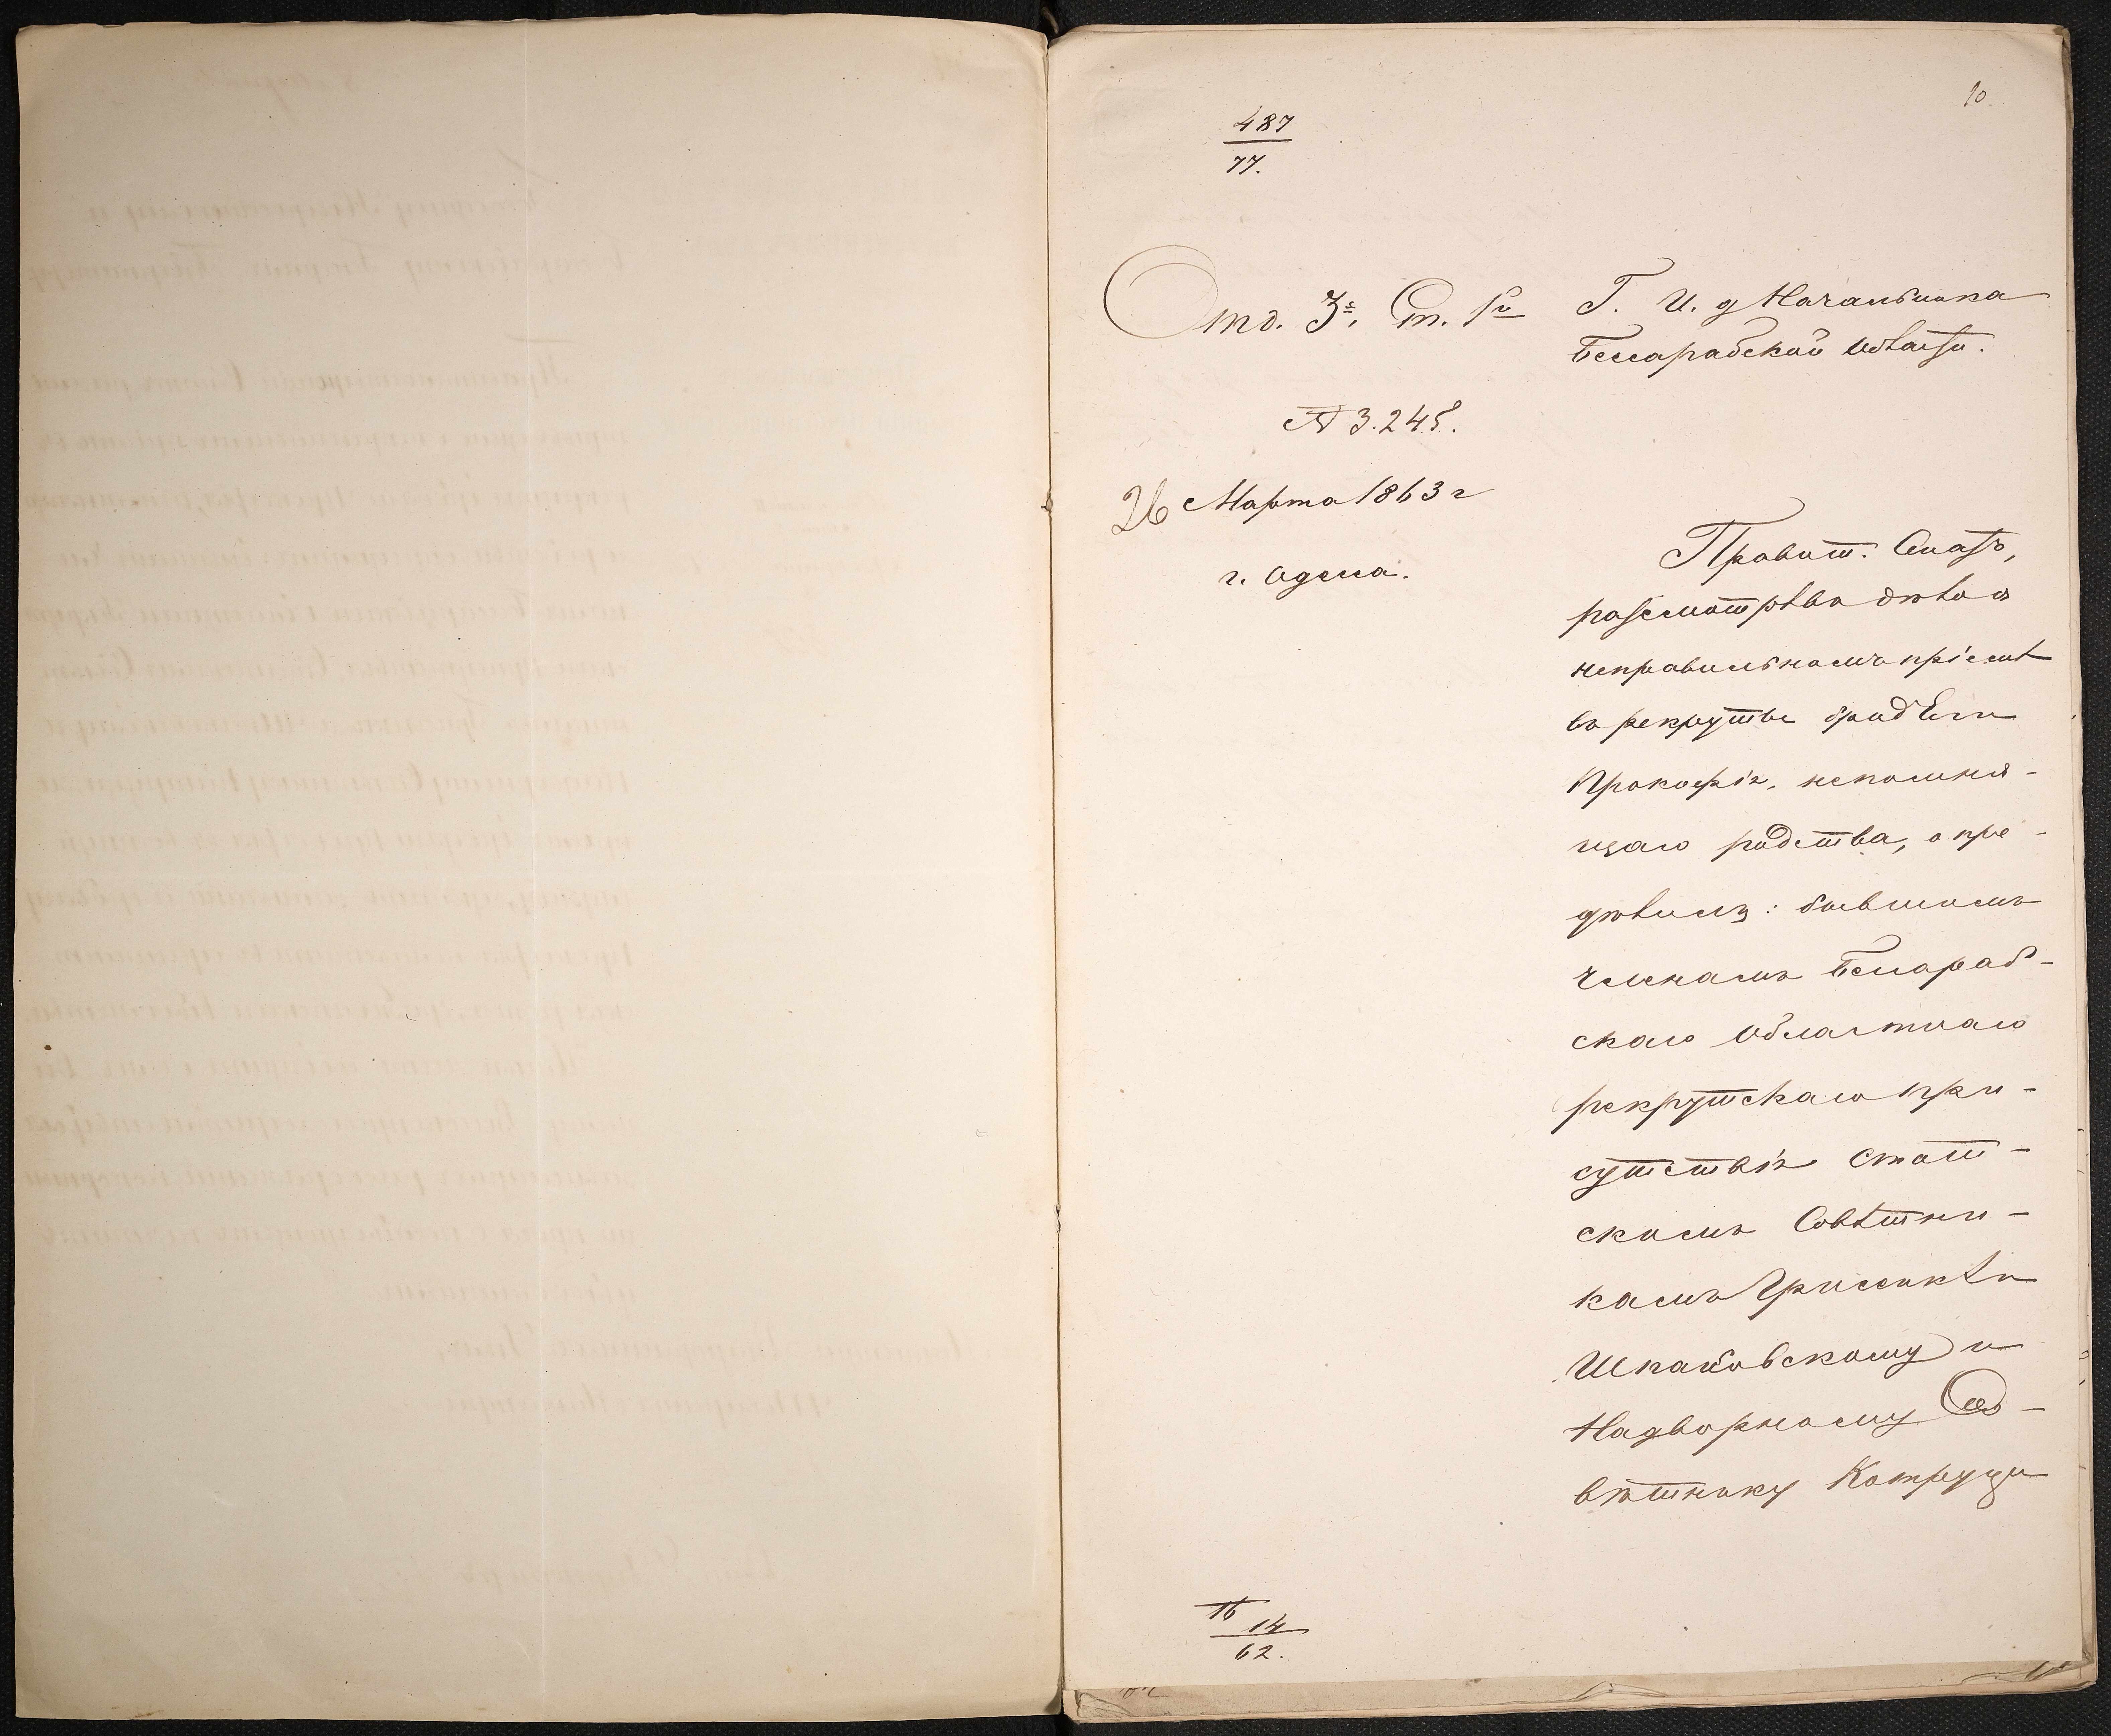 10
487
77.
Отд. 3е. Ст. 1й
№ 3.245.
26 Марта 1863 г
г. Одесса.
Г. И. д Начальника
Бессарабской Области.
Правит. Сенатъ,
разсмотрѣвъ дѣло о
неправильномъ пріемѣ
въ рекруты бродяги
Прокофія, непомня-
щаго родства, опре-
дѣлилъ: бывшимъ
членамъ Бессараб-
скаго Областнаго
рекрутскаго при-
сутствія Стат-
скимъ Совѣтни-
камъ
Шпаковскому и
Надворному Со-
вѣтнику Котруца
№ 14
62.